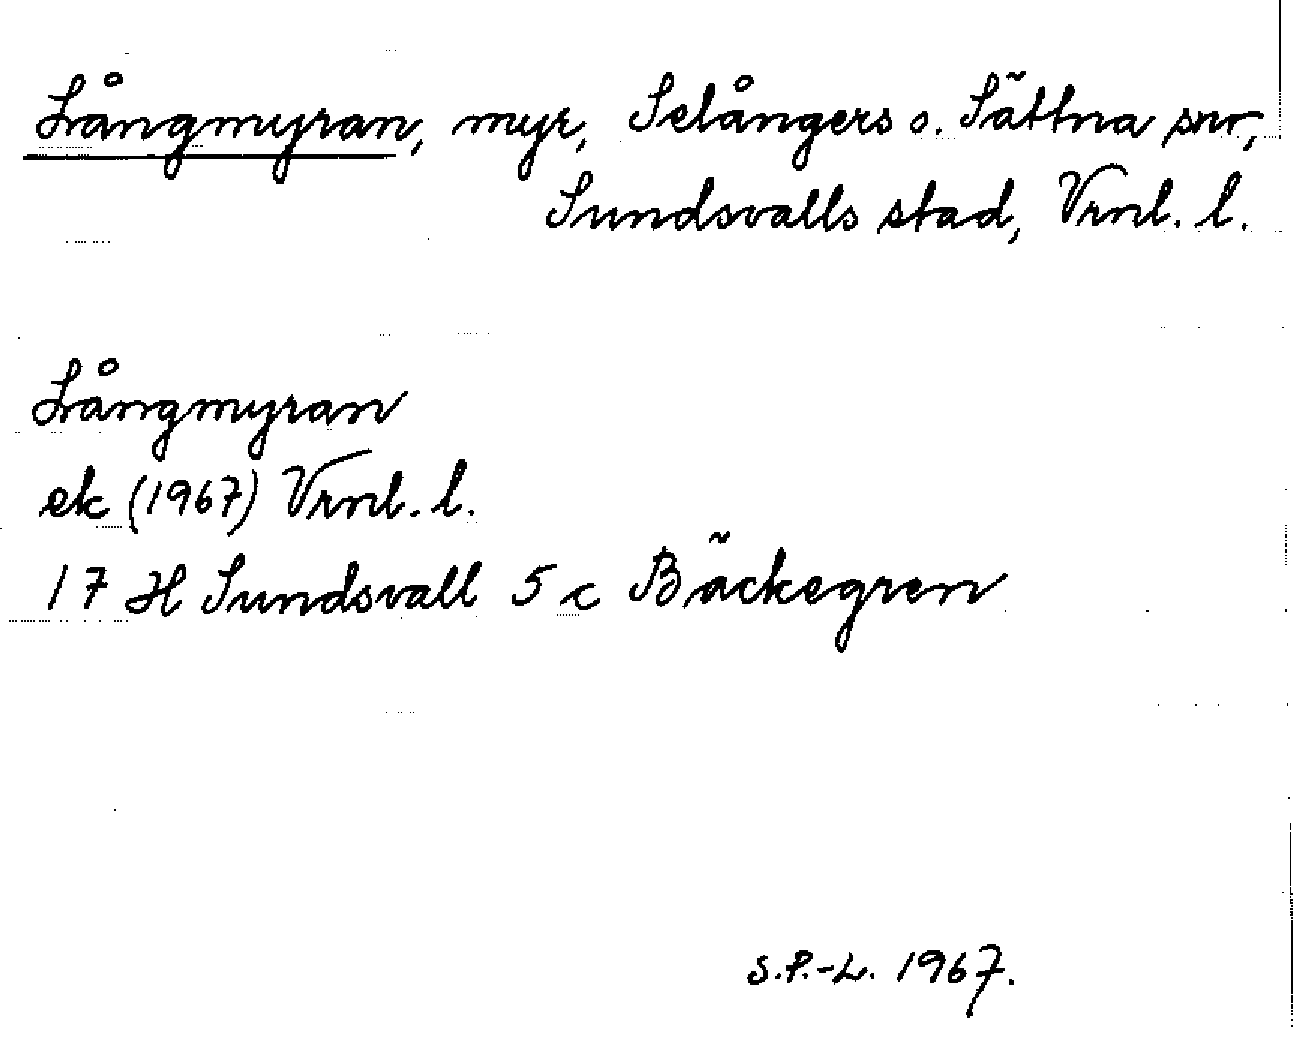 Långmyran, myr, Selångers o. Sättna snr,
Sundsvalls stad, Vrnl. l.
Långmyran
ek (1967) Vrnl. l.
17 H Sundsvall 5 c Bäckegren
S.P.-L. 1967.